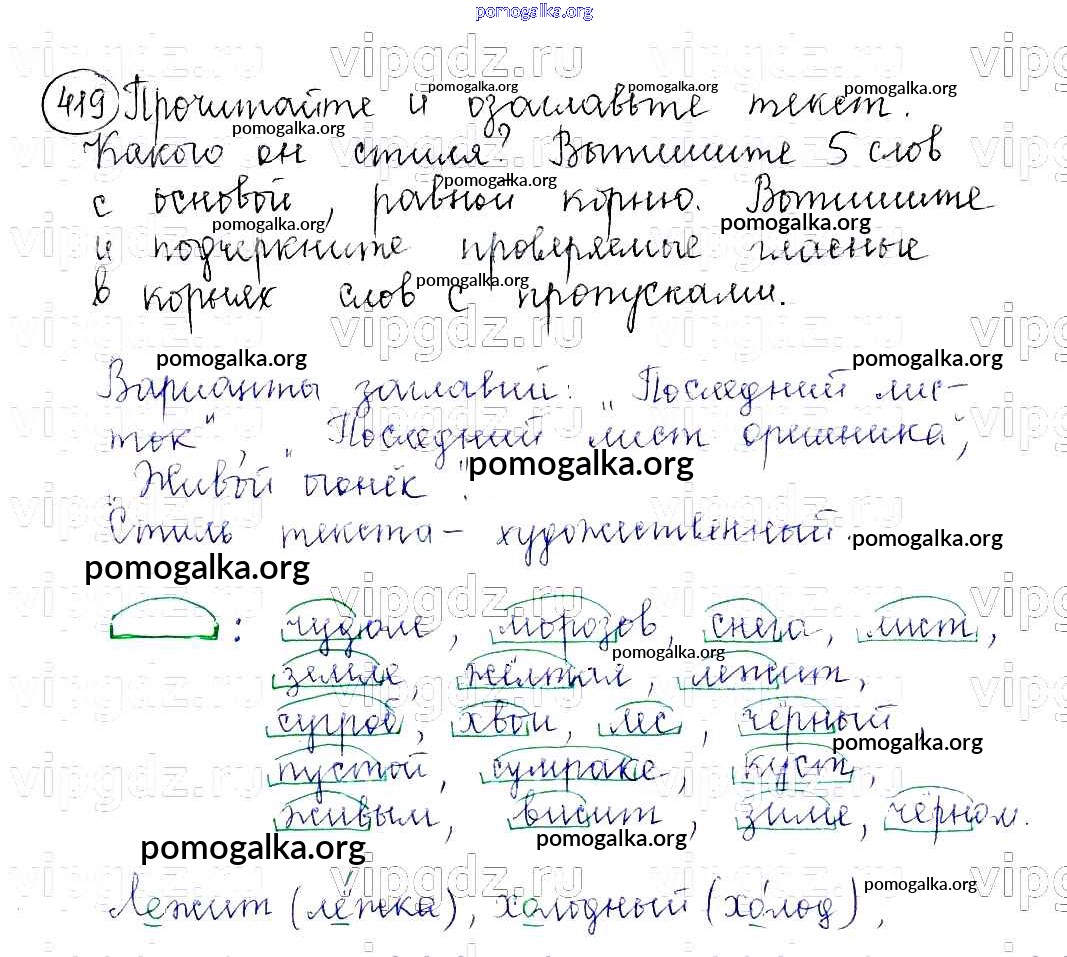 pomogalka.org
419 Прочитайте и озаглавьте текст.
Какого он стиля? Выпишите 5 слов
с основой, равной корню. Выпишите
и подчеркните проверяемые гласные
в корнях слов с пропусками.
Варианты заглавий: "Последний лис-
ток", "Последний лист орешника",
"Живой огонёк".
Стиль текста - художественный.
pomogalka.org
: чудаме, морозов, снега, лист,
земле, жёлтая, лежит,
сугроб, хвои, лес, чёрный,
пустой, сумраке, куст,
живым, висит, зиме, чёрном.
pomogalka.org
Лежит (лёжка), холодный (хо́лод),
vipgdz.ru